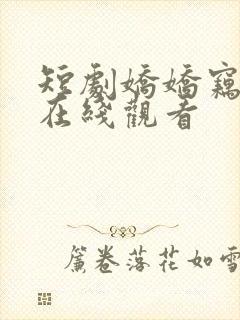 短劇嬌嬌竊
在綫觀看
簾卷落花如雪